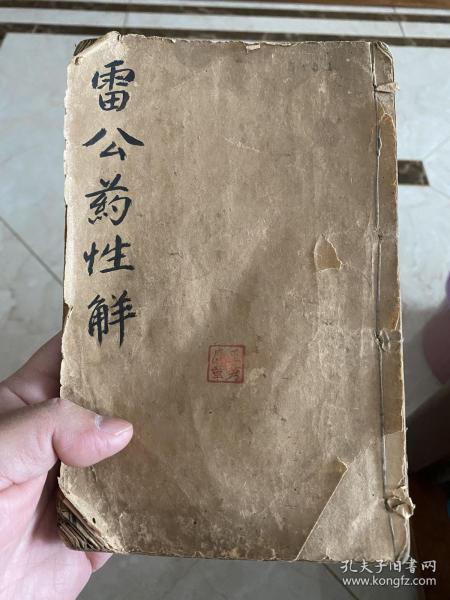 雷公药性觧
孔夫子旧书网
www.kongfz.com